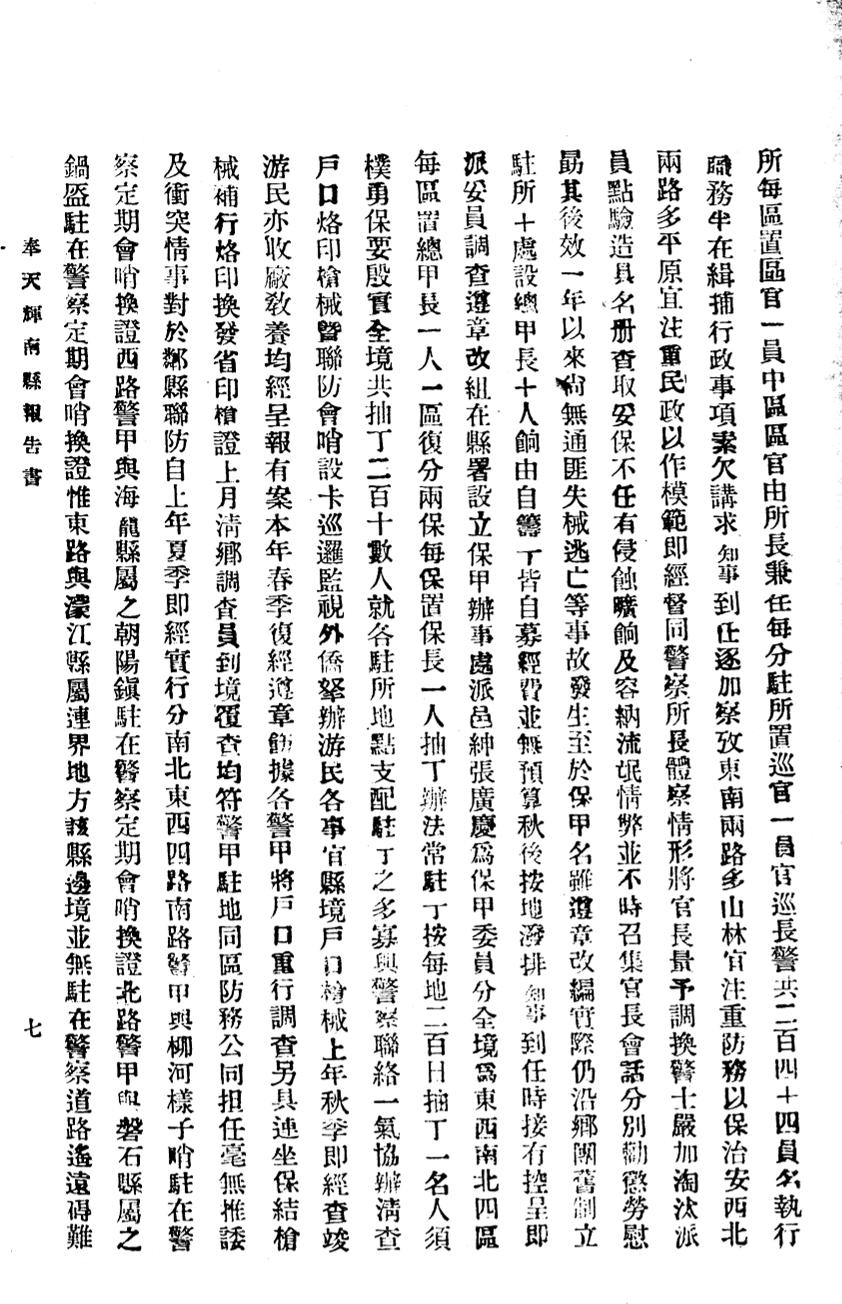 所每區置區官一員中區區官由所長兼任每分駐所置巡官一員官巡長警共二百四十四員名執行
職務半在緝捕行政事項素欠講求知事到任逐加察攷東南兩路多山林宜注重防務以保治安西北
兩路多平原宜注重民政以作模範即經督同警察所長體察情形將官長量予調換警士嚴加淘汰派
員點驗造具名册查取妥保不任有侵蝕曠餉及容納流氓情弊並不時召集官長會話分別勸懲勞慰
勗其後效一年以來尚無通匪失械逃亡等事故發生至於保甲名雖遵章改編實際仍沿鄉團舊制立
駐所十處設總甲長十人餉由自籌丁皆自募經費並無預算秋後按地潑排知事到任時接有控呈即
派妥員調查遵章改組在縣署設立保甲辦事處派邑紳張廣慶爲保甲委員分全境爲東西南北四區
每區置總甲長一人一區復分兩保每保置保長一人抽丁辦法常駐丁按每地二百日抽丁一名人須
樸勇保要殷實全境共抽丁二百十數人就各駐所地點支配駐丁之多寡與警察聯絡一氣協辦清查
戶口烙印槍械暨聯防會哨設卡巡邏監視外僑拏辦游民各事宜縣境戶口槍械上年秋季即經查竣
游民亦收廠敎養均經呈報有案本年春季復經遵章飭據各警甲將戶口重行調查另具連坐保結槍
械補行烙印換發省印槍證上月淸鄉調查員到境覆查均符警甲駐地同區防務公同担任毫無推諉
及衝突情事對於鄰縣聯防自上年夏季即經實行分南北東西四路南路警甲與柳河樣子哨駐在警
察定期會哨換證西路警甲與海龍縣屬之朝陽鎭駐在警察定期會哨換證北路警甲與磐石縣屬之
鍋盔駐在警察定期會哨換證惟東路與濛江縣屬連界地方該縣邊境並無駐在警察道路遙遠碍難
奉天輝南縣報告書
七